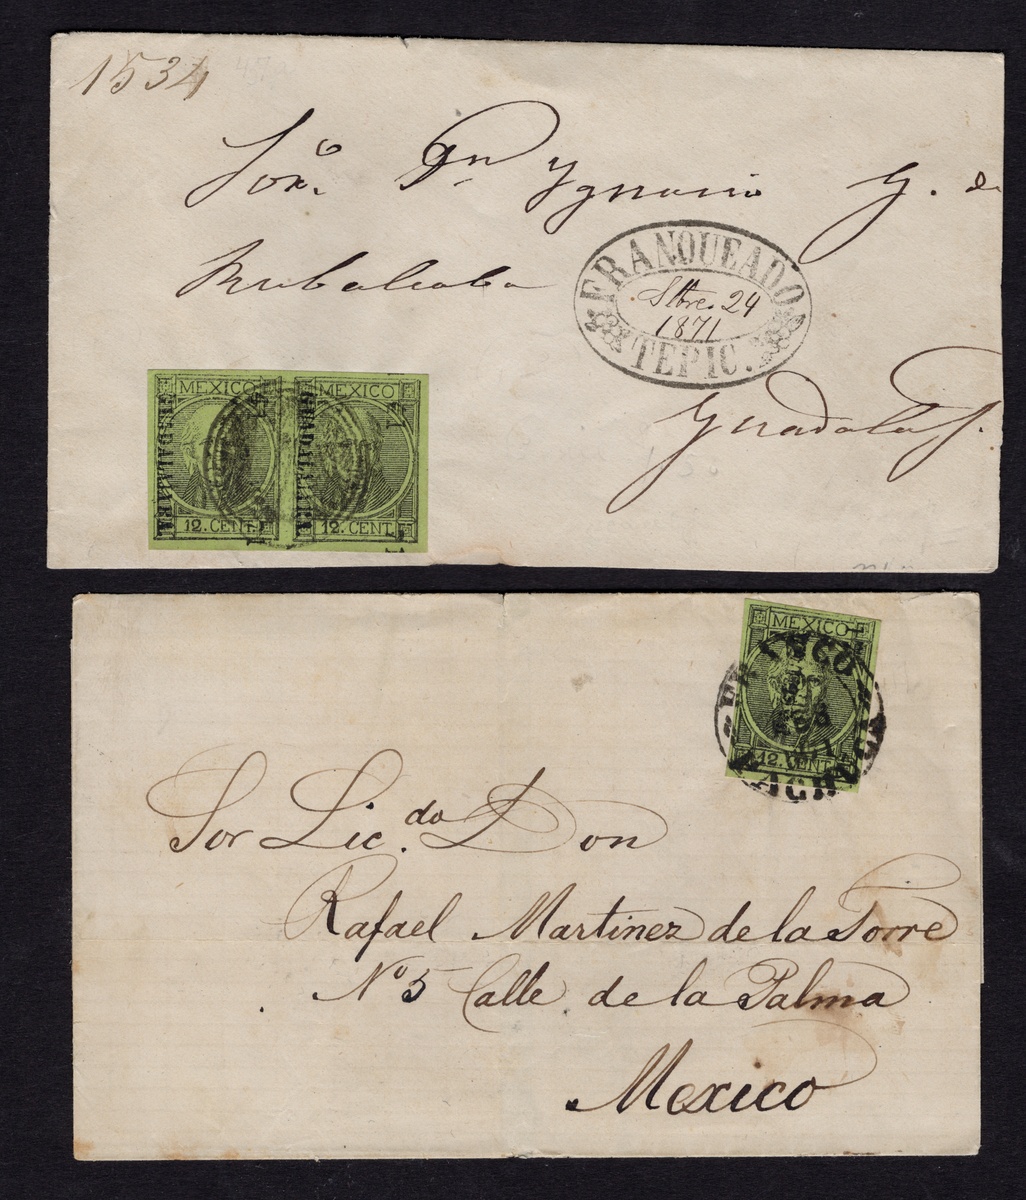 1534
Sor. Dn Ygnacio G. de
Rubalcaba
FRANQUEADO
Stbre. 24
1871
TEPIC.
Guadalaj.
MEXICO
MEXICO
GUADALAJARA
GUADALAJARA
12. CENT.
12. CENT.
MEXICO
FRANCO
12. CENT.
Sor Lic.do Don
Rafael Martinez de la Torre
No 5 Calle de la Palma
Mexico